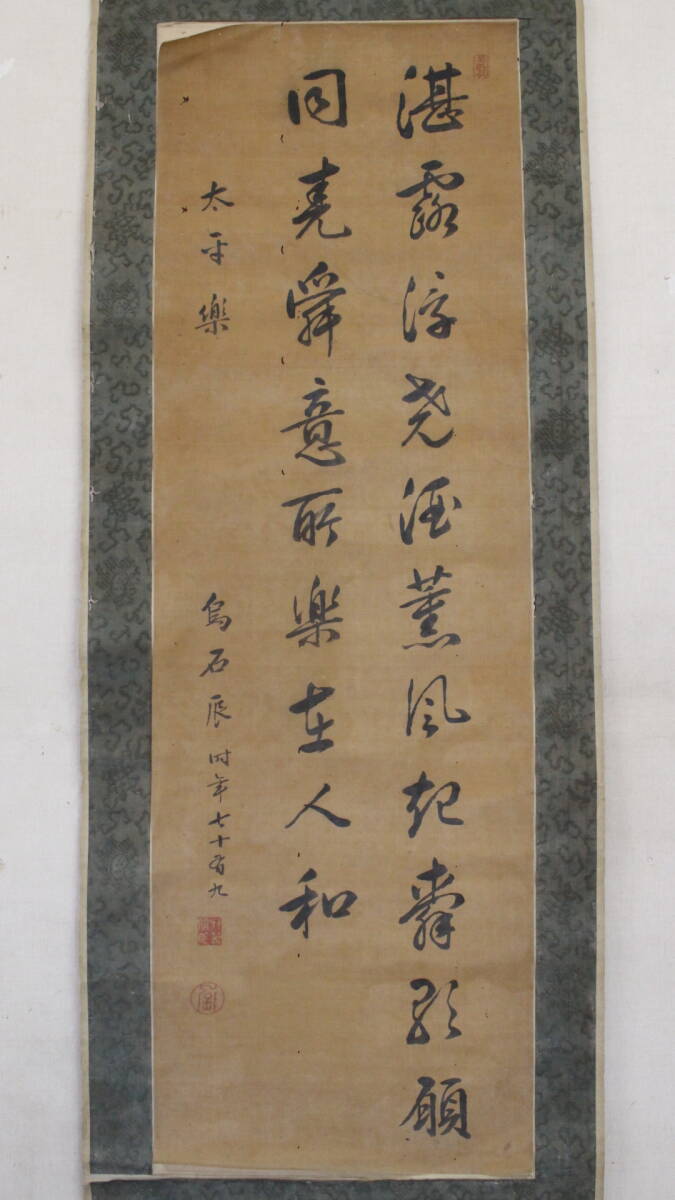 湛露浮堯酒薰風起舜歌願
同堯舜意所樂在人和
太平樂
烏石辰時年七十有九